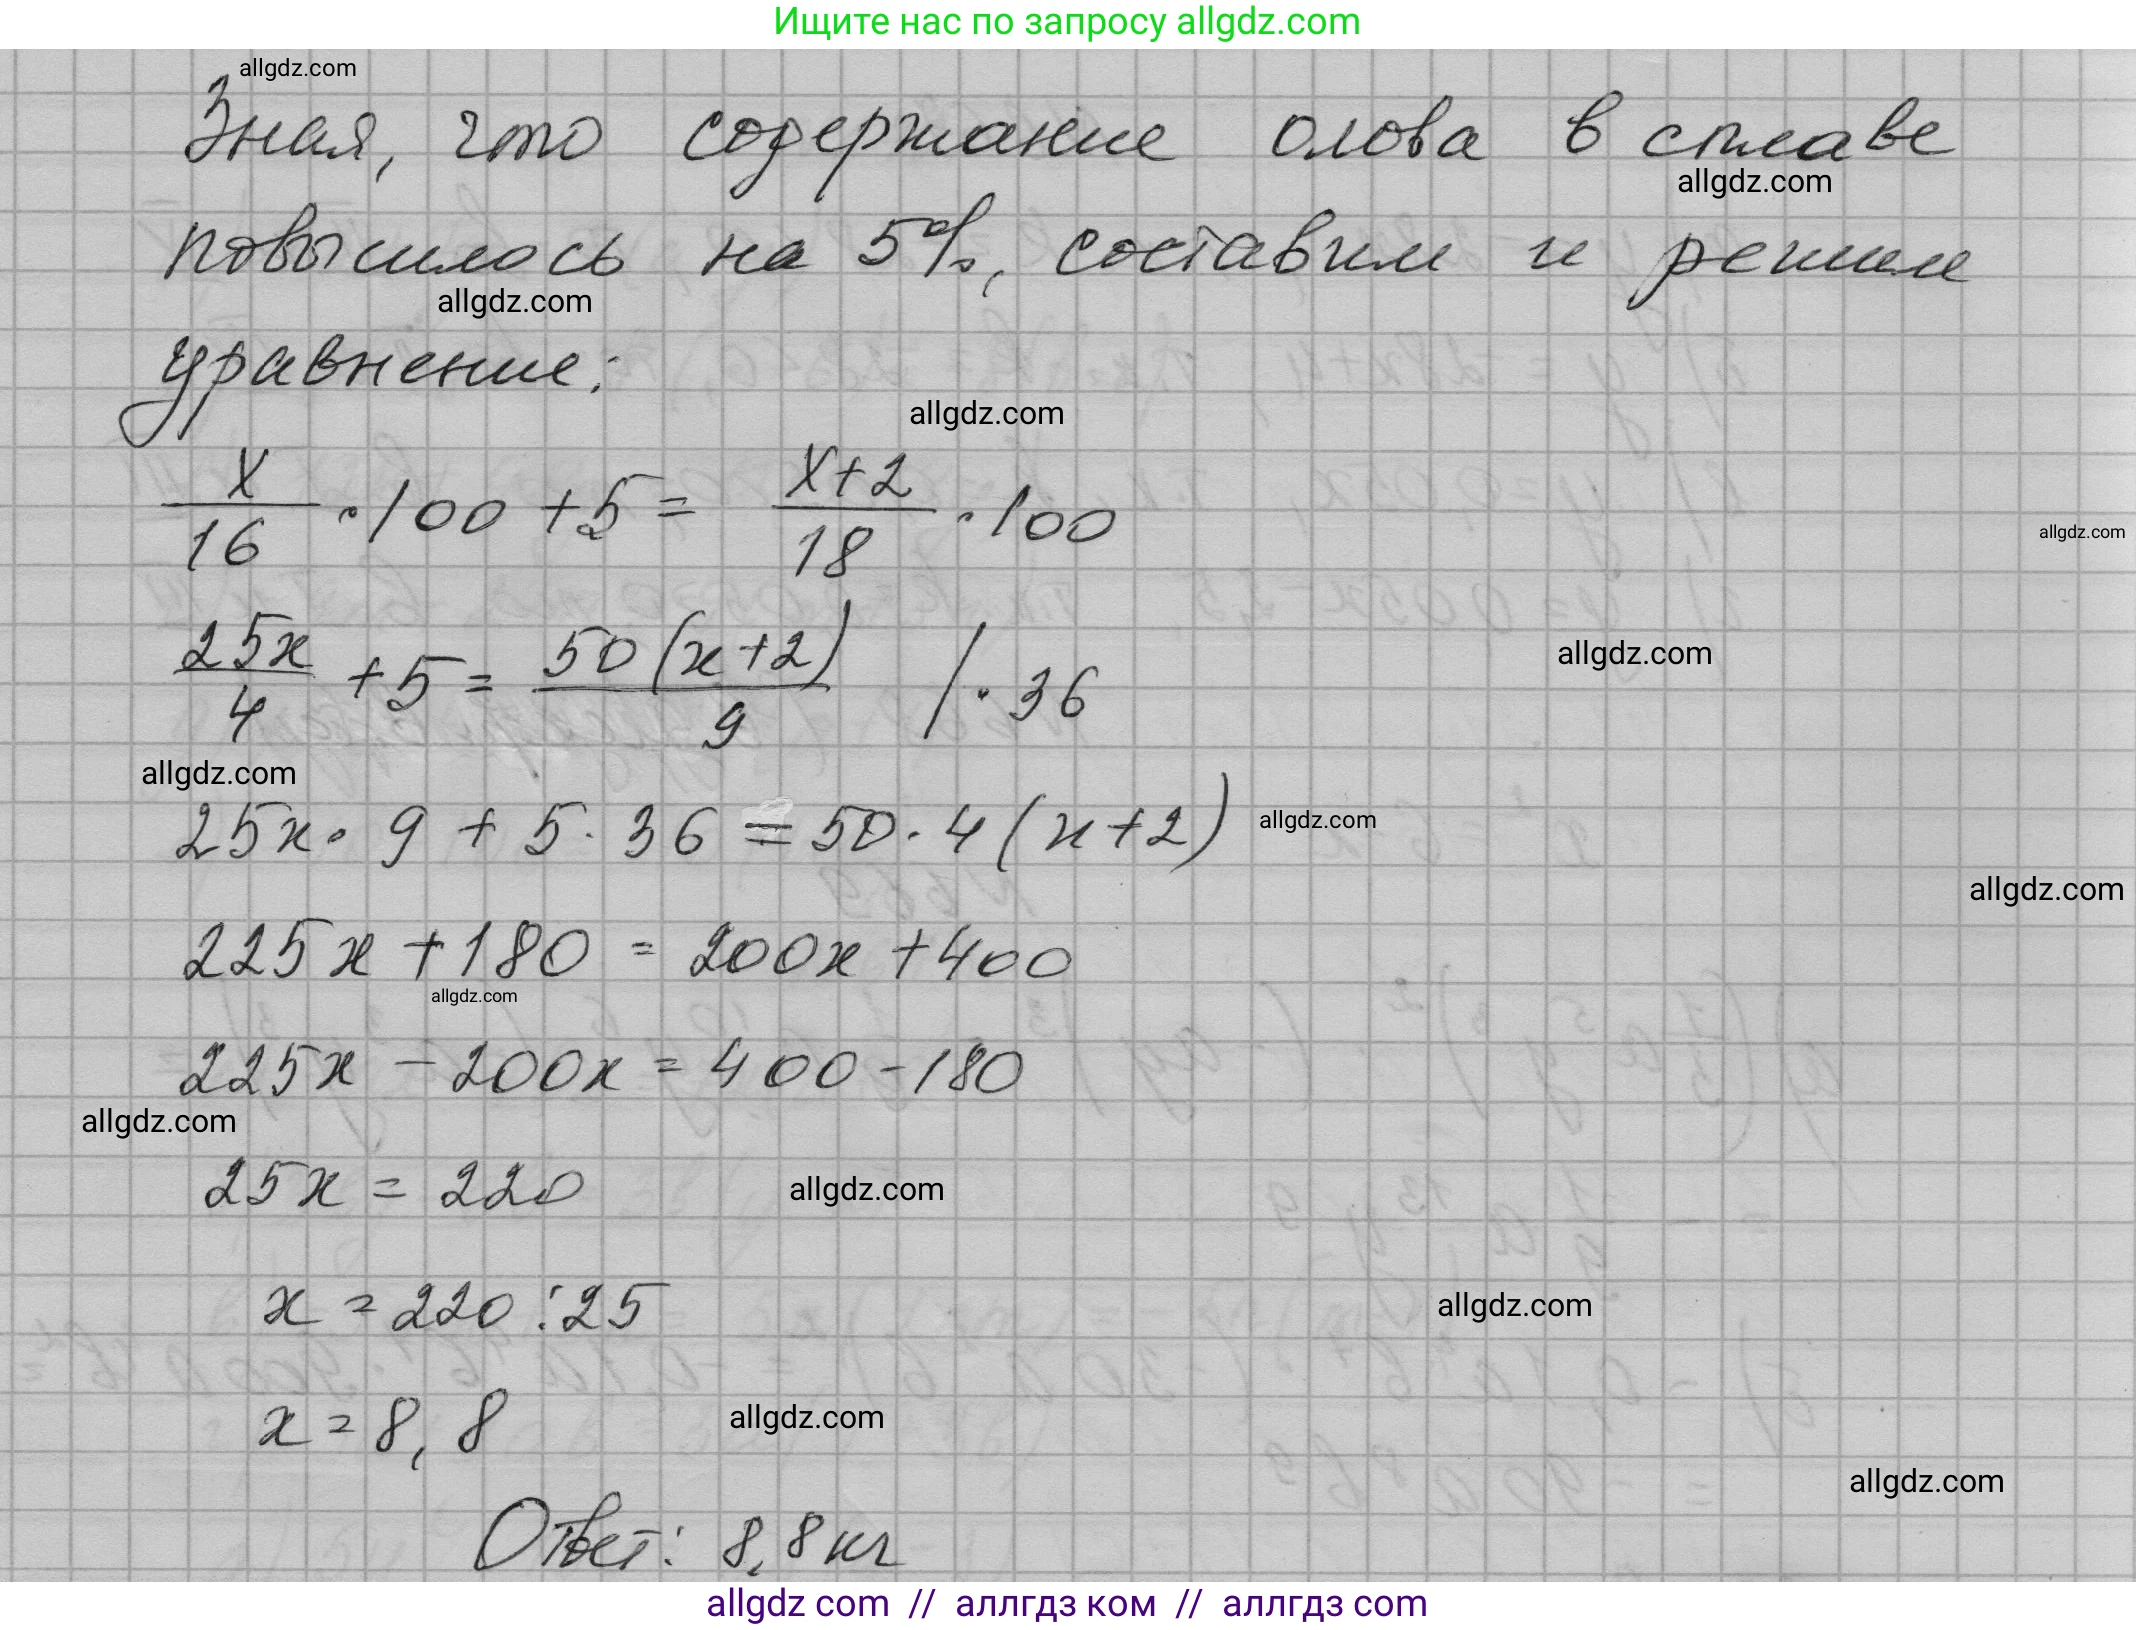 Ищите нас по запросу allgdz.com
allgdz.com
Зная, что содержание олова в сплаве
allgdz.com
повысилось на 5%, составим и решим
allgdz.com
уравнение:
allgdz.com
x/16 · 100 + 5 = x+2/18 · 100
allgdz.com
25x/4 + 5 = 50(x+2)/9 / · 36
allgdz.com
allgdz.com
25x · 9 + 5 · 36 = 50 · 4 (x+2)
allgdz.com
allgdz.com
225x + 180 = 200x + 400
allgdz.com
225x - 200x = 400 - 180
allgdz.com
25x = 220
allgdz.com
x = 220 : 25
allgdz.com
x = 8,8
allgdz.com
allgdz.com
Ответ: 8,8 кг
allgdz com // аллгдз ком // аллгдз com